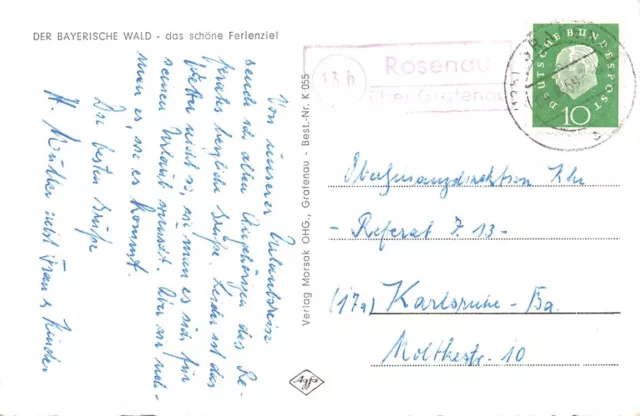 DER BAYERISCHE WALD - das schöne Ferienziel
Von unserer Urlaubsreise
sende ich allen Angehörigen des Re-
ferates herzliche Grüße. Leider ist das
Wetter nicht so, wie man es sich für
seinen Urlaub wünscht. Aber wir neh-
men es, wie es kommt.
Die besten Grüße
H. Müller nebst Frau u. Kinder
Verlag Morsak OHG., Grafenau - Best.-Nr. K 055
Agfa
13b
Rosenau
über Grafenau
DEUTSCHE BUNDESPOST
10
- Referat Z 13 -
(17a) Karlsruhe - Ba.
Moltkestr. 10